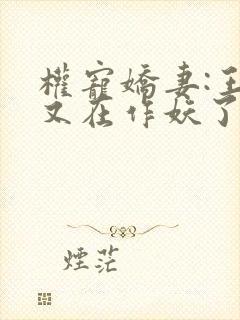 權寵嬌妻:王
又在作妖了
煙茫